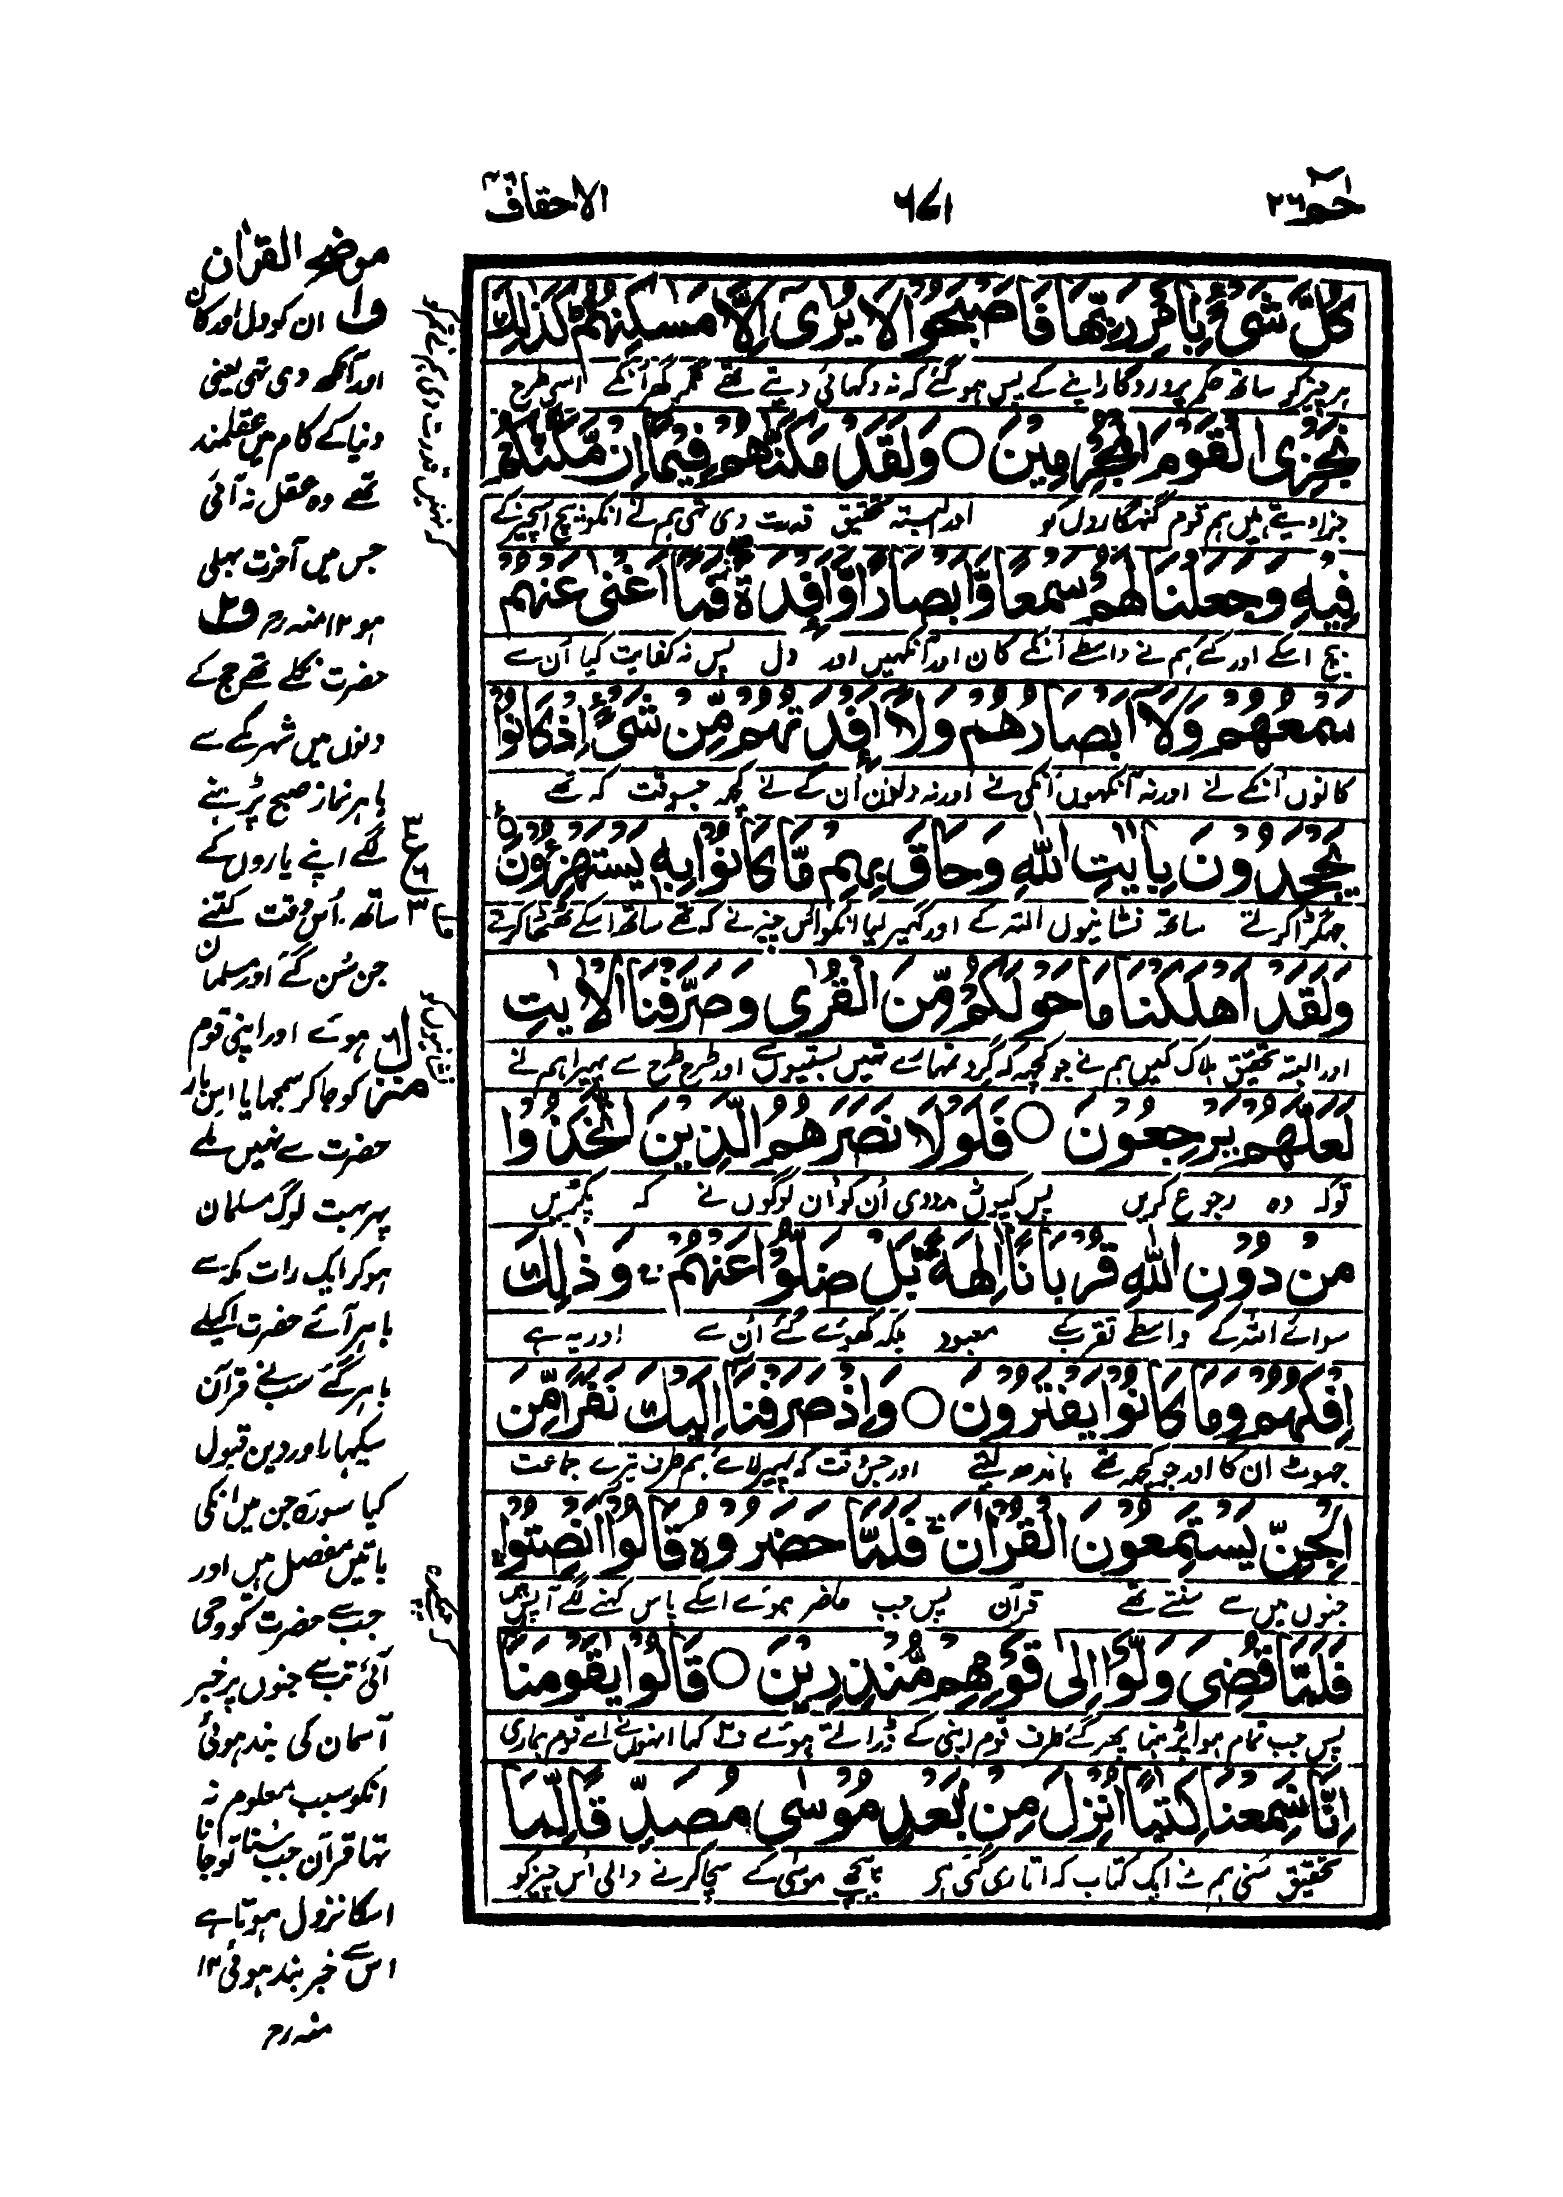 حٰمٓ ٢٦
٦٧١
الاحقاف ٤٦
كُلَّ شَیْءٍۭ بِاَمْرِ رَبِّهَا فَاَصْبَحُوْا لَا یُرٰۤى اِلَّا مَسٰكِنُهُمْ ؕ كَذٰلِكَ
ہر چیز کو ساتھ حکم پروردگار اپنے کے پس ہو گئے کہ نہ دکھائی دیتے تھے مگر گھر اُنکے اسی طرح
نَجْزِی الْقَوْمَ الْمُجْرِمِیْنَ ○ وَلَقَدْ مَكَّنّٰهُمْ فِیْمَاۤ اِنْ مَّكَّنّٰكُمْ
جزا دیتے ہیں ہم قوم گنہگاروں کو اور البتہ تحقیق قدرت دی تھی ہم نے انکو بیچ اُس چیز کے
فِیْهِ وَجَعَلْنَا لَهُمْ سَمْعًا وَّاَبْصَارًا وَّاَفْـِٕدَةً ۖ فَمَاۤ اَغْنٰى عَنْهُمْ
بیچ اسکے اور کئے ہم نے واسطے اُنکے کان اور آنکھیں اور دل پس نہ کفایت کیا اُن سے
سَمْعُهُمْ وَلَاۤ اَبْصَارُهُمْ وَلَاۤ اَفْـِٕدَتُهُمْ مِّنْ شَیْءٍ اِذْ كَانُوْا
کانوں اُنکے نے اور نہ آنکھوں اُنکی نے اور نہ دلوں اُن کے نے کچھ جسوقت کہ تھے
یَجْحَدُوْنَ بِاٰیٰتِ اللّٰهِ وَحَاقَ بِهِمْ مَّا كَانُوْا بِهٖ یَسْتَهْزِءُوْنَ
جھگڑا کرتے ساتھ نشانیوں اللہ کے اور گھیر لیا انکو اُس چیز نے کہ تھے ساتھ اسکے ٹھٹھا کرتے
وَلَقَدْ اَهْلَكْنَا مَا حَوْلَكُمْ مِّنَ الْقُرٰى وَصَرَّفْنَا الْاٰیٰتِ
اور البتہ تحقیق ہلاک کیں ہم نے جو کچھ کہ گرد تمہارے تھیں بستیوں سے اور طرح طرح سے پھیرا ہم نے
لَعَلَّهُمْ یَرْجِعُوْنَ ○ فَلَوْلَا نَصَرَهُمُ الَّذِیْنَ اتَّخَذُوْا
توکہ وہ رجوع کریں پس کیوں نہ مدد دی اُن کو اُن لوگوں نے کہ پکڑیں
مِنْ دُوْنِ اللّٰهِ قُرْبَانًا اٰلِهَةً ؕ بَلْ ضَلُّوْا عَنْهُمْ ۚ وَذٰلِكَ
سوائے اللہ کے واسطے تقرب کے معبود بلکہ کھوئے گئے اُن سے اور یہ ہے
اِفْكُهُمْ وَمَا كَانُوْا یَفْتَرُوْنَ ○ وَاِذْ صَرَفْنَاۤ اِلَیْكَ نَفَرًا مِّنَ
جھوٹ ان کا اور جو کچھ تھے باندھ لیتے اور جس وقت کہ پھیر لائے ہم طرف تیرے جماعت
الْجِنِّ یَسْتَمِعُوْنَ الْقُرْاٰنَ ۚ فَلَمَّا حَضَرُوْهُ قَالُوْۤا اَنْصِتُوْا
جنوں میں سے سنتے تھے قرآن پس جب حاضر ہوئے اسکے پاس کہنے لگے آپس میں
فَلَمَّا قُضِیَ وَلَّوْا اِلٰى قَوْمِهِمْ مُّنْذِرِیْنَ ○ قَالُوْا یٰقَوْمَنَاۤ
پس جب تمام ہوا پڑھنا پھر گئے طرف قوم اپنی کے ڈراتے ہوئے ف۲ کہا انہوں نے اے قوم ہماری
اِنَّا سَمِعْنَا كِتٰبًا اُنْزِلَ مِنْۢ بَعْدِ مُوْسٰى مُصَدِّقًا لِّمَا
تحقیق سُنی ہم نے ایک کتاب کہ اتاری گئی ہے پیچھے موسٰی کے سچا کرنے والی اُس چیز کو
موضح القرآن
ف۱ ان کو دل اور کان
اور آنکھ دی تھی یعنی
دنیا کے کام میں عقلمند
تھے وہ عقل نہ آئی
جس میں آخرت بھلی
ہو ۱۲ منہ رح ف۲
حضرت نکلے تھے حج کے
دنوں میں شہر مکے سے
باہر نماز صبح پڑہنے
لگے اپنے یاروں کے
ساتھ۔ اُس وقت کتنے
جن سُن گئے اور مسلمان
ہوئے اور اپنی قوم
کو جا کر سمجھایا اس بار
حضرت سے نہیں ملے
پھر بہت لوگ مسلمان
ہو کر ایک رات مکہ سے
باہر آئے حضرت اکیلے
باہر گئے سب نے قرآن
سیکھا اور دین قبول
کیا سورہ جن میں انکی
باتیں مفصل ہیں اور
جب سے حضرت کو وحی
آئی تب سے جنوں پر خبر
آسمان کی بند ہوئی
انکو سبب معلوم نہ
تھا قرآن جب سُنا تو جانا
اسکا نزول ہوتا ہے
اس سے خبر بند ہوئی ۱۲
منہ رح
منزل ٦